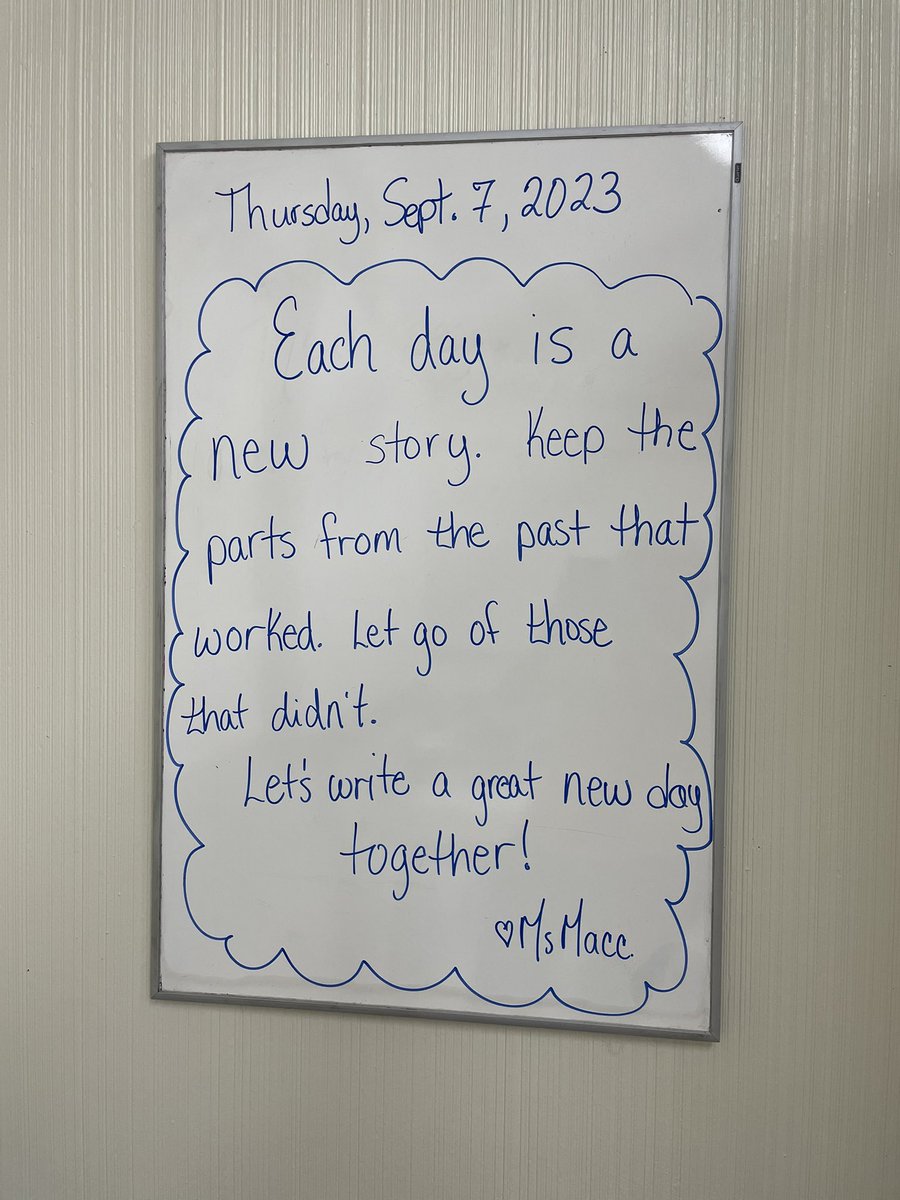 Thursday, Sept. 7, 2023
Each day is a
new story. Keep the
parts from the past that
worked. Let go of those
that didn't.
Let's write a great new day
together!
♡Ms Macc.